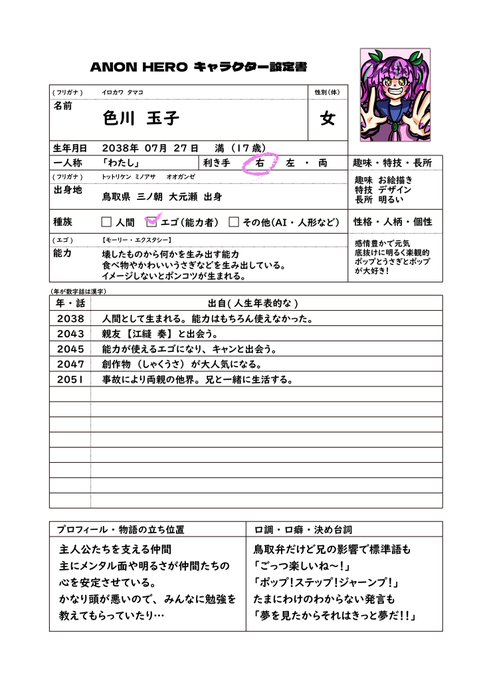 ANON HERO キャラクター設定書
(フリガナ) イロカワ タマコ
名前 色川 玉子
性別(体)
女
生年月日 2038年 07月 27日 満 (17歳)
一人称 「わたし」 利き手 右 左 ・ 両
趣味・特技・長所
趣味 お絵描き
特技 デザイン
長所 明るい
(フリガナ) トットリケン ミノアサ オオガンゼ
出身地 鳥取県 三ノ朝 大元瀬 出身
種族 人間 エゴ(能力者) その他(AI・人形など)
性格・人柄・個性
感情豊かで元気
底抜けに明るく楽観的
ポップとうさぎとポップ
が大好き!
(エゴ) 【モーリー・エクスタシー】
能力 壊したものから何かを生み出す能力
食べ物やかわいいうさぎなどを生み出している。
イメージしないとポンコツが生まれる。
(年が数字話は漢字)
年・話 出自(人生年表的な)
2038 人間として生まれる。能力はもちろん使えなかった。
2043 親友【江縫 奏】と出会う。
2045 能力が使えるエゴになり、キャンと出会う。
2047 創作物(しゃくうさ)が大人気になる。
2051 事故により両親の他界。兄と一緒に生活する。
プロフィール・物語の立ち位置
主人公たちを支える仲間
主にメンタル面や明るさが仲間たちの
心を安定させている。
かなり頭が悪いので、みんなに勉強を
教えてもらっていたり…
口調・口癖・決め台詞
鳥取弁だけど兄の影響で標準語も
「ごっつ楽しいね〜!」
「ポップ!ステップ!ジャーンプ!」
たまにわけのわからない発言も
「夢を見たからそれはきっと夢だ!!」